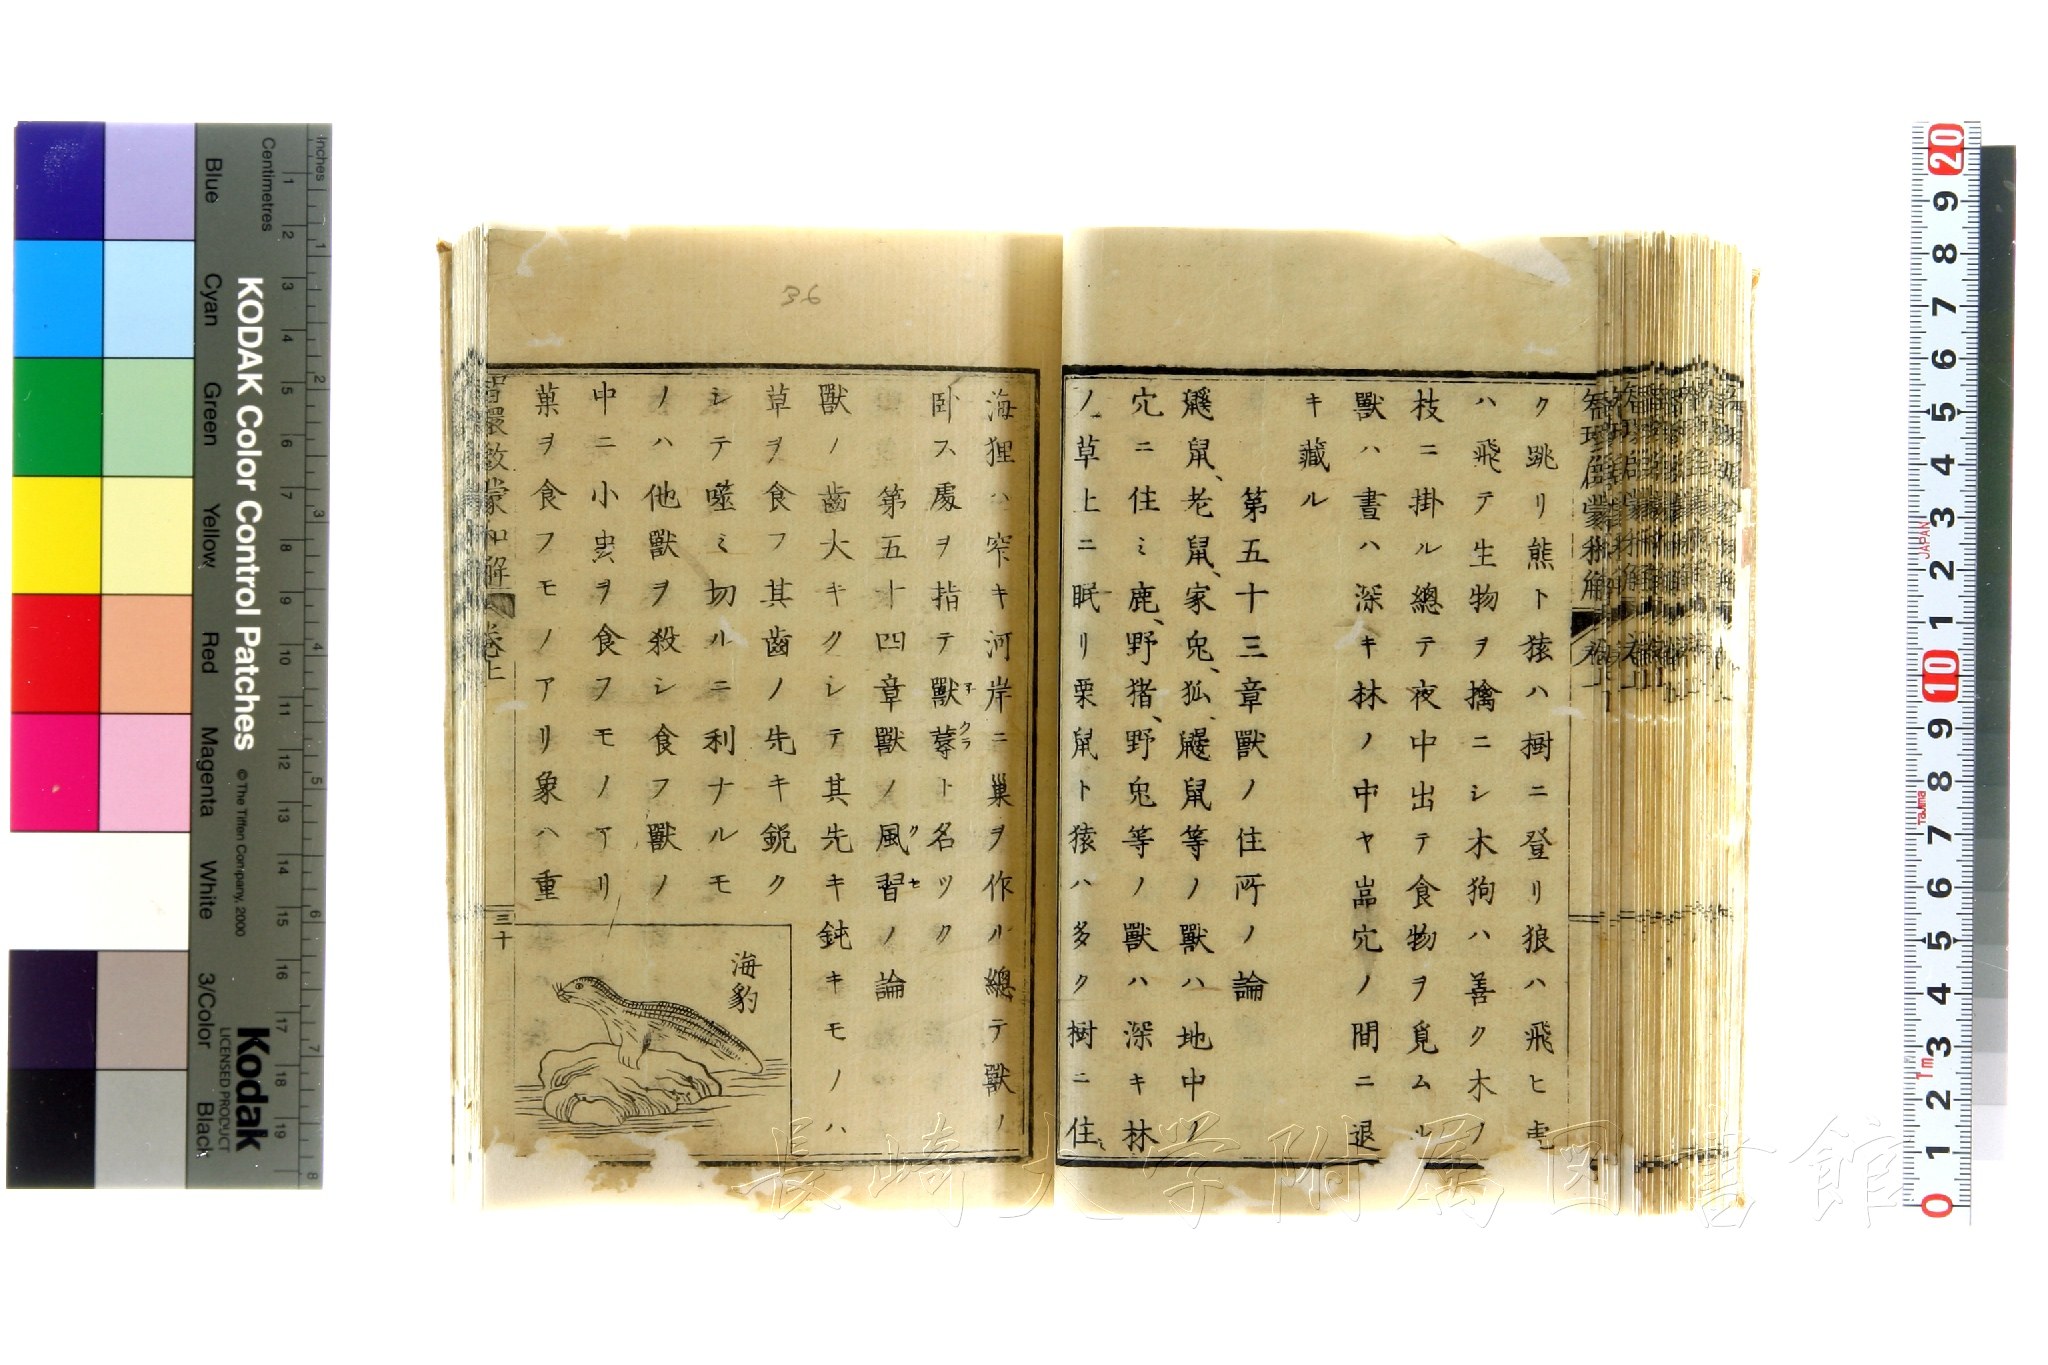 ク跳リ熊ト猿ハ樹ニ登リ狼ハ飛ヒ虎
ハ飛テ生物ヲ擒ニシ木狗ハ善ク木ノ
枝ニ掛ル總テ夜中出テ食物ヲ覓ムル
獸ハ晝ハ深キ林ノ中ヤ嵓穴ノ間ニ退
キ藏ル
第五十三章獸ノ住所ノ論
鼴鼠、老鼠、家兎、狐、鼹鼠等ノ獸ハ地中ノ
穴ニ住ミ鹿、野猪、野兎等ノ獸ハ深キ林
ノ草上ニ眠リ栗鼠ト猿ハ多ク樹ニ住ミ
海狸ハ窄キ河岸ニ巢ヲ作ル總テ獸ノ
卧ス處ヲ指テ獸蓐ト名ツク
第五十四章獸ノ風習ノ論
クセ
獸ノ齒大キクシテ其先キ鈍キモノハ
草ヲ食フ其齒ノ先キ鋭ク
シテ噬ミ切ルニ利ナルモ
ノハ他獸ヲ殺シ食フ獸ノ
中ニ小虫ヲ食フモノアリ
菓ヲ食フモノアリ象ハ重
海豹
智環啟蒙和解
卷上
三十
36
長崎大学附属図書館
KODAK Color Control Patches
© The Tiffen Company, 2000
Kodak
LICENSED PRODUCT
Inches
Centimetres
Blue
Cyan
Green
Yellow
Red
Magenta
White
3/Color
Black
1 2 3 4 5 6 7 8 9 10 11 12 13 14 15 16 17 18 19
1 2 3 4 5 6 7 8
20 9 8 7 6 5 4 3 2 1 10 9 8 7 6 5 4 3 2 1 0
JAPAN
Tajima